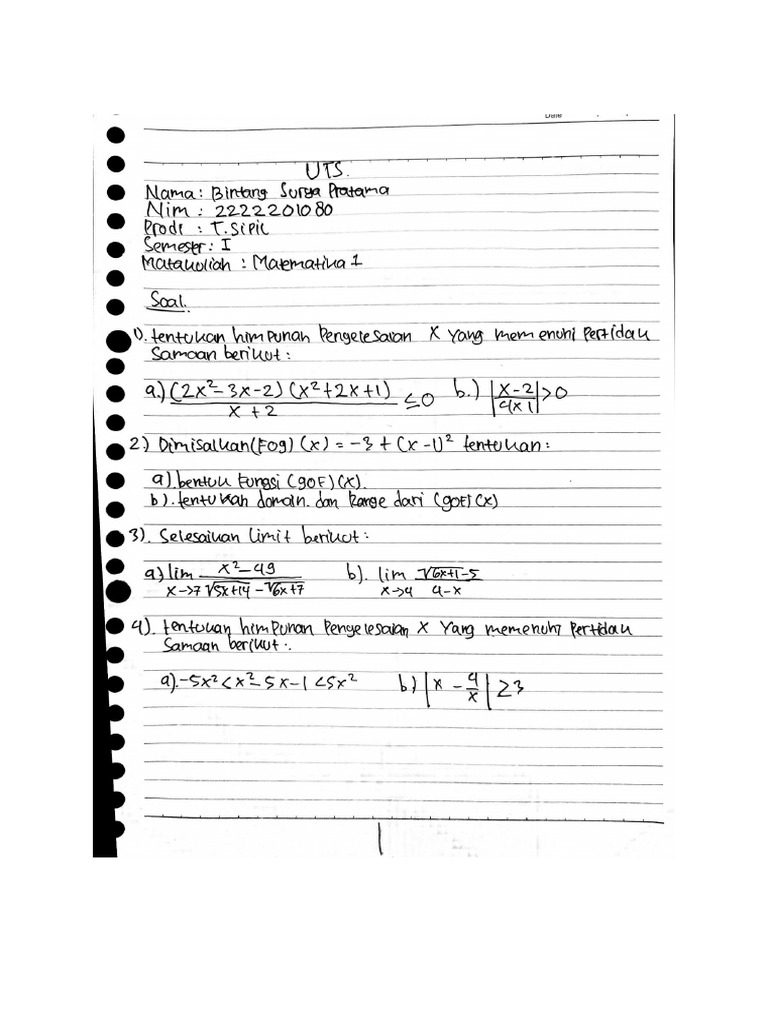 Date
UTS.
Nama : Bintang Surya Pratama
Nim : 2222201080
Prodi : T. Sipil
Semester : I
Matakuliah : Matematika 1
Soal.
1). tentukan himpunan Pengelesaian X Yang memenuhi Pertidak
Samaan berikut :
a.) (2x²-3x-2) (x²+2x+1) / x+2 ≤0 b.) |x-2 / 4x 1| >0
2.) Dimisalkan (Fog) (x) = -3 + (x-1)² tentukan :
a) bentuk Fungsi (goF) (x).
b). tentukan domain. dan Range dari (goF) (x)
3). Selesaikan limit berikut :
a) lim x→7 x²-49 / √5x+14 - √6x+7 b). lim x→4 √6x+1-5 / 4-x
4). tentukan himpunan Pengelesaian X Yang memenuhi Pertidak
Samaan berikut :.
a).-5x² < x²-5x-1 < 5x² b) |x - 4/x| ≥3